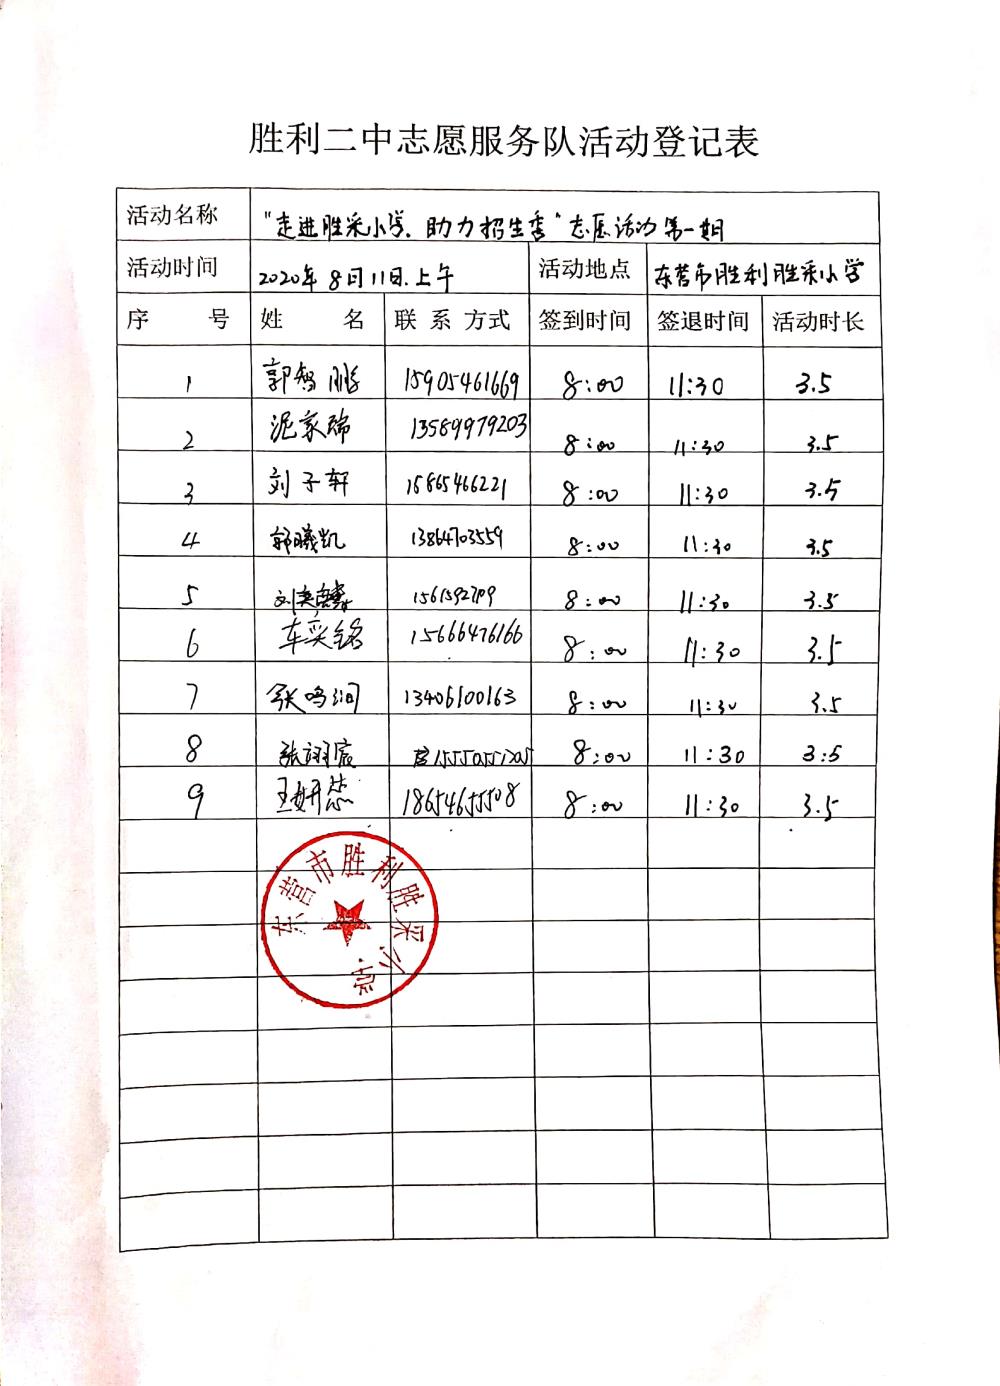 胜利二中志愿服务队活动登记表
活动名称 "走进胜采小学，助力招生季"志愿活动第一期
活动时间 2020年8月11日.上午 活动地点 东营市胜利胜采小学
序号 姓名 联系方式 签到时间 签退时间 活动时长
1 郭智鹏 15905461669 8:00 11:30 3.5
2 泥家瑞 13589979203 8:00 11:30 3.5
3 刘子轩 15865466221 8:00 11:30 3.5
4 郭曦凯 13864703559 8:00 11:30 3.5
5 8:00 11:30 3.5
6 车奕铭 15666476166 8:00 11:30 3.5
7 张鸣润 13406100163 8:00 11:30 3.5
8 8:00 11:30 3:5
9 王妍蕊 18654655508 8:00 11:30 3.5
东营市胜利胜采小学